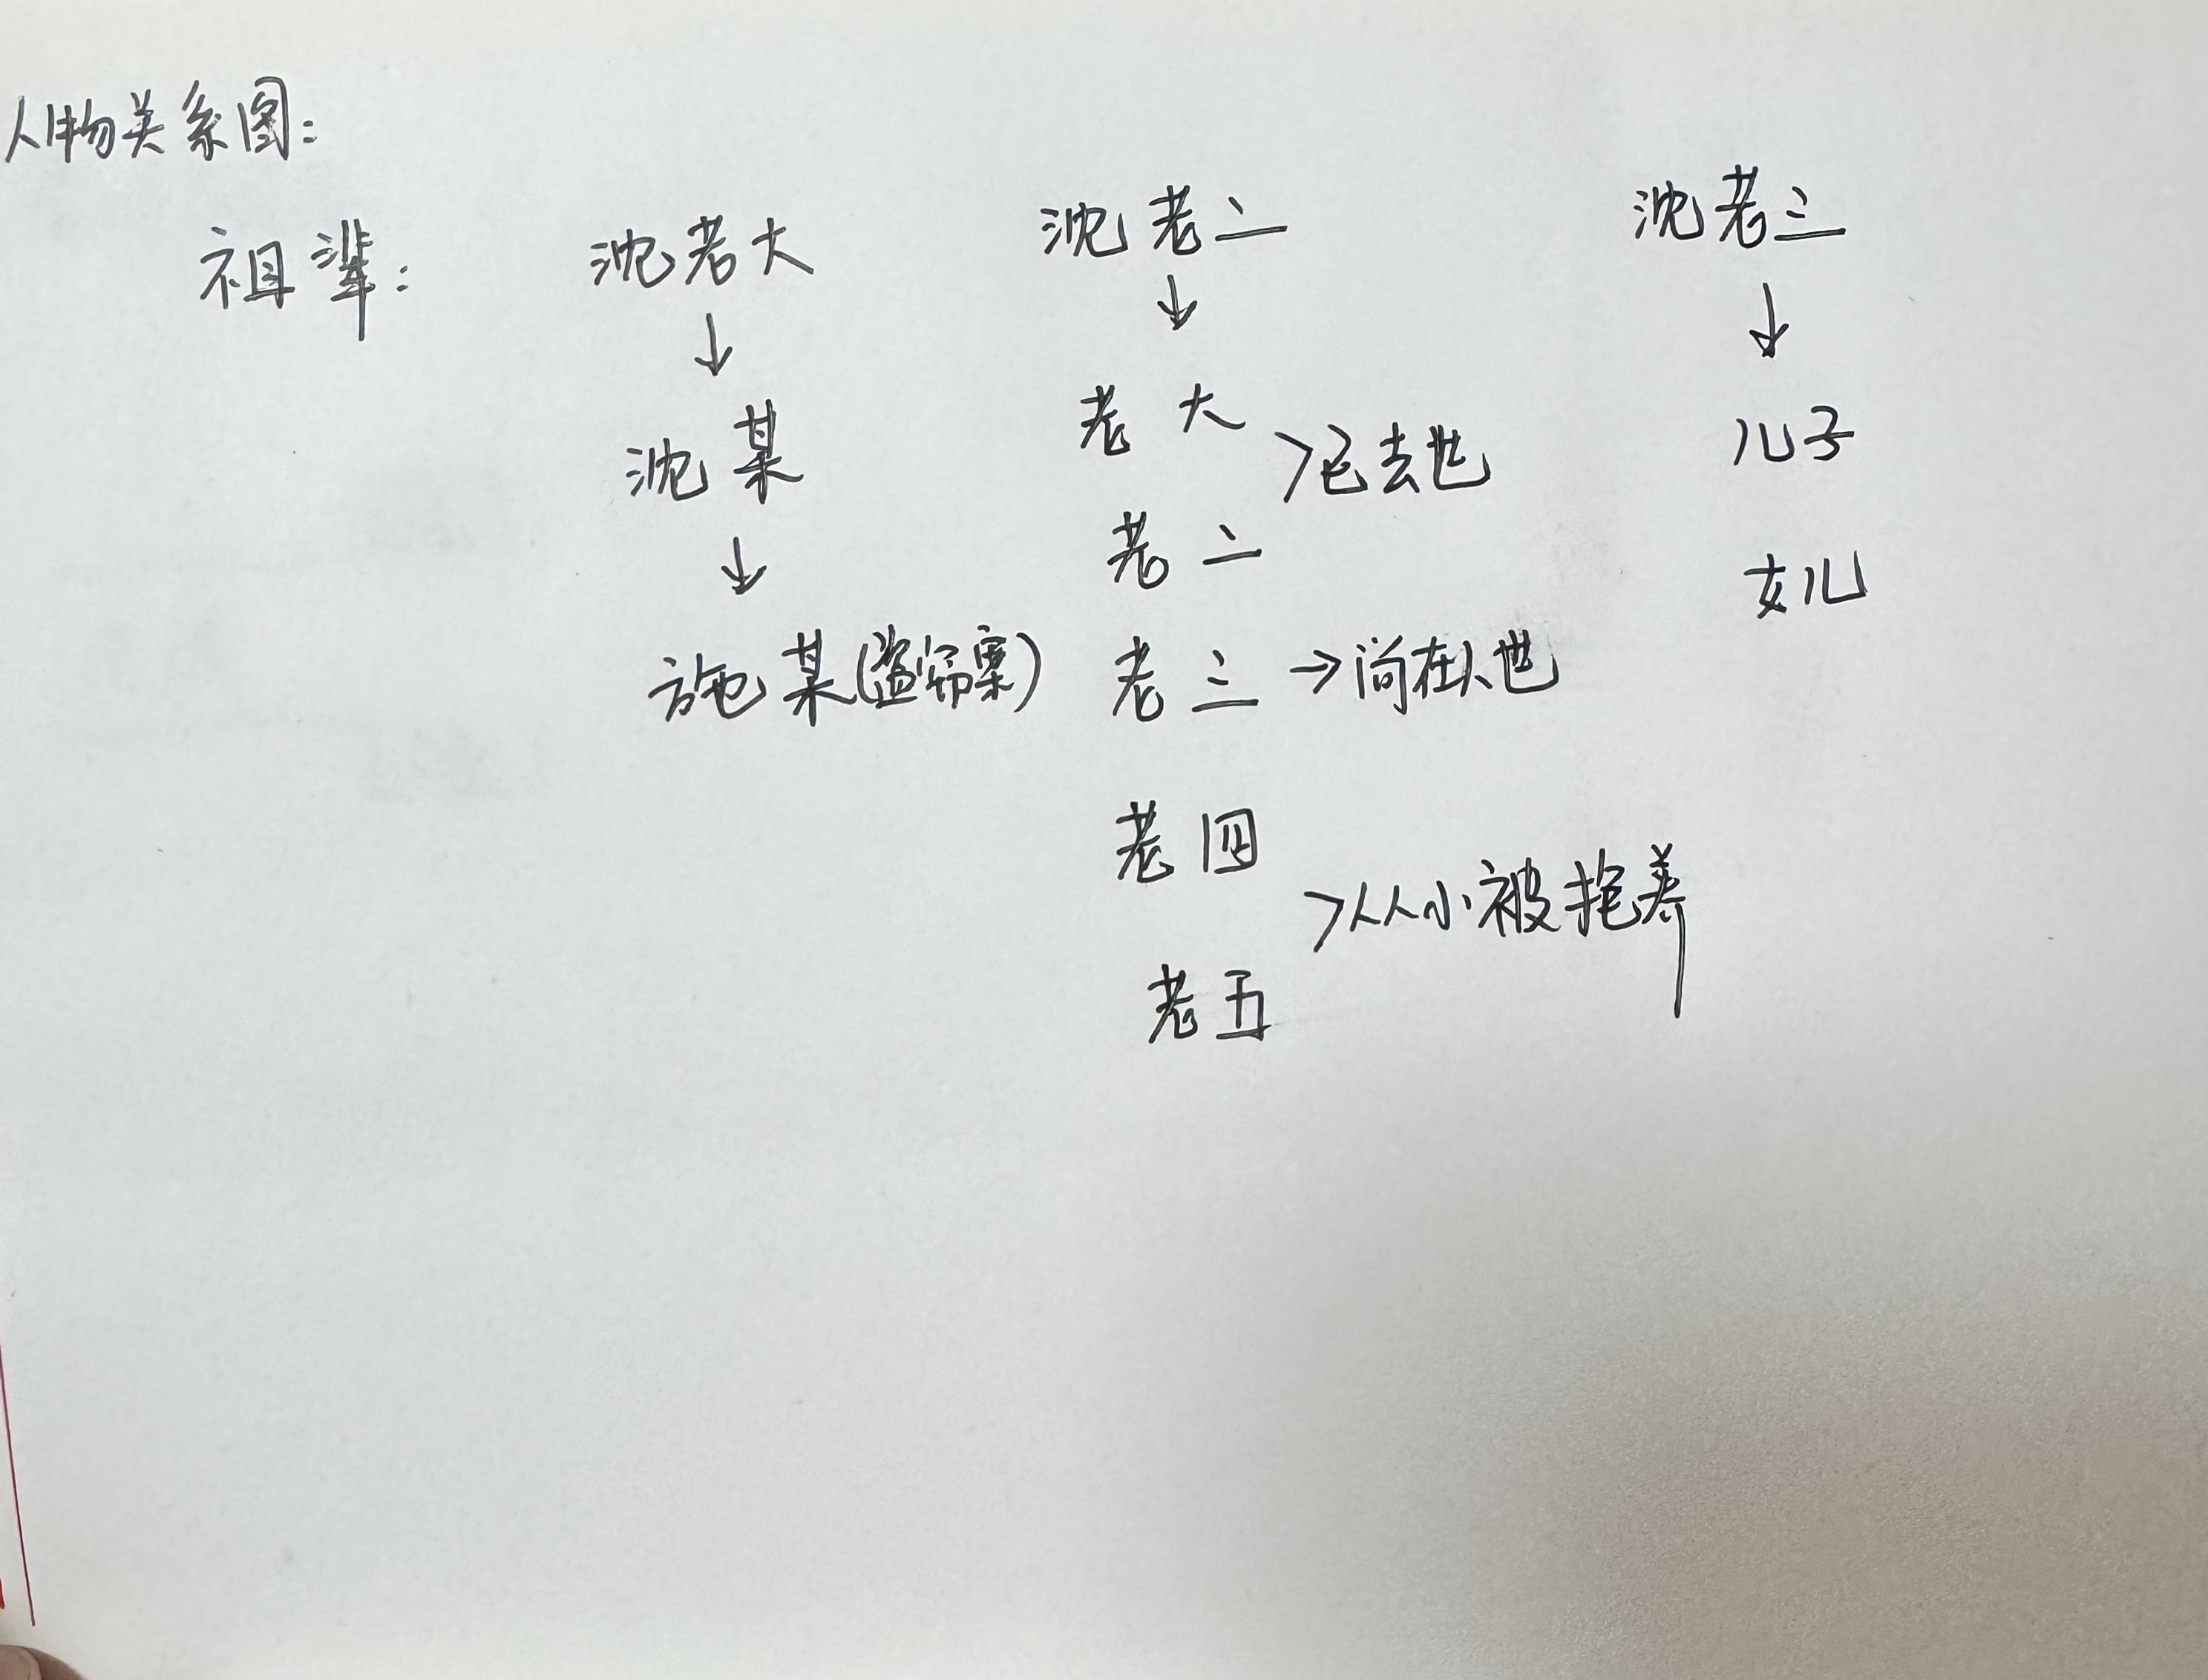 人物关系图:
祖辈: 沈老大 沈老二 沈老三
↓ ↓ ↓
沈某 老大 >已去世 儿子
↓ 老二 女儿
施某(盗窃案) 老三 →尚在人世
老四
>从小被抱养
老五